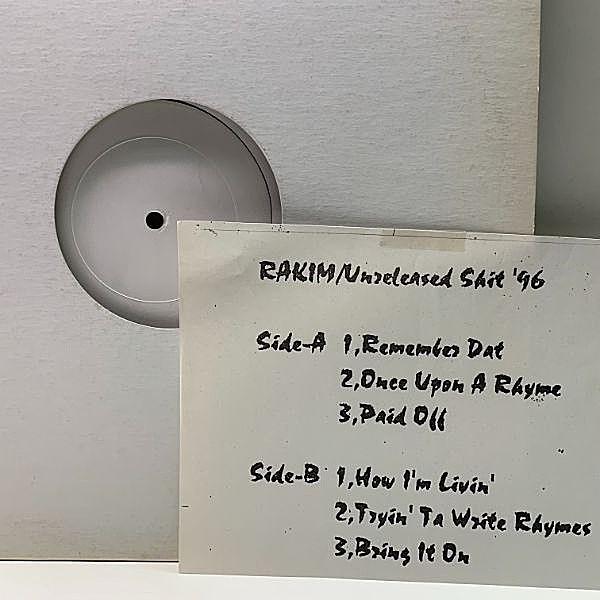 RAKIM/Unreleased Shit '96
Side-A 1,Remember Dat
2,Once Upon A Rhyme
3,Paid Off
Side-B 1,How I'm Livin'
2,Tryin' Ta Write Rhymes
3,Bring It On